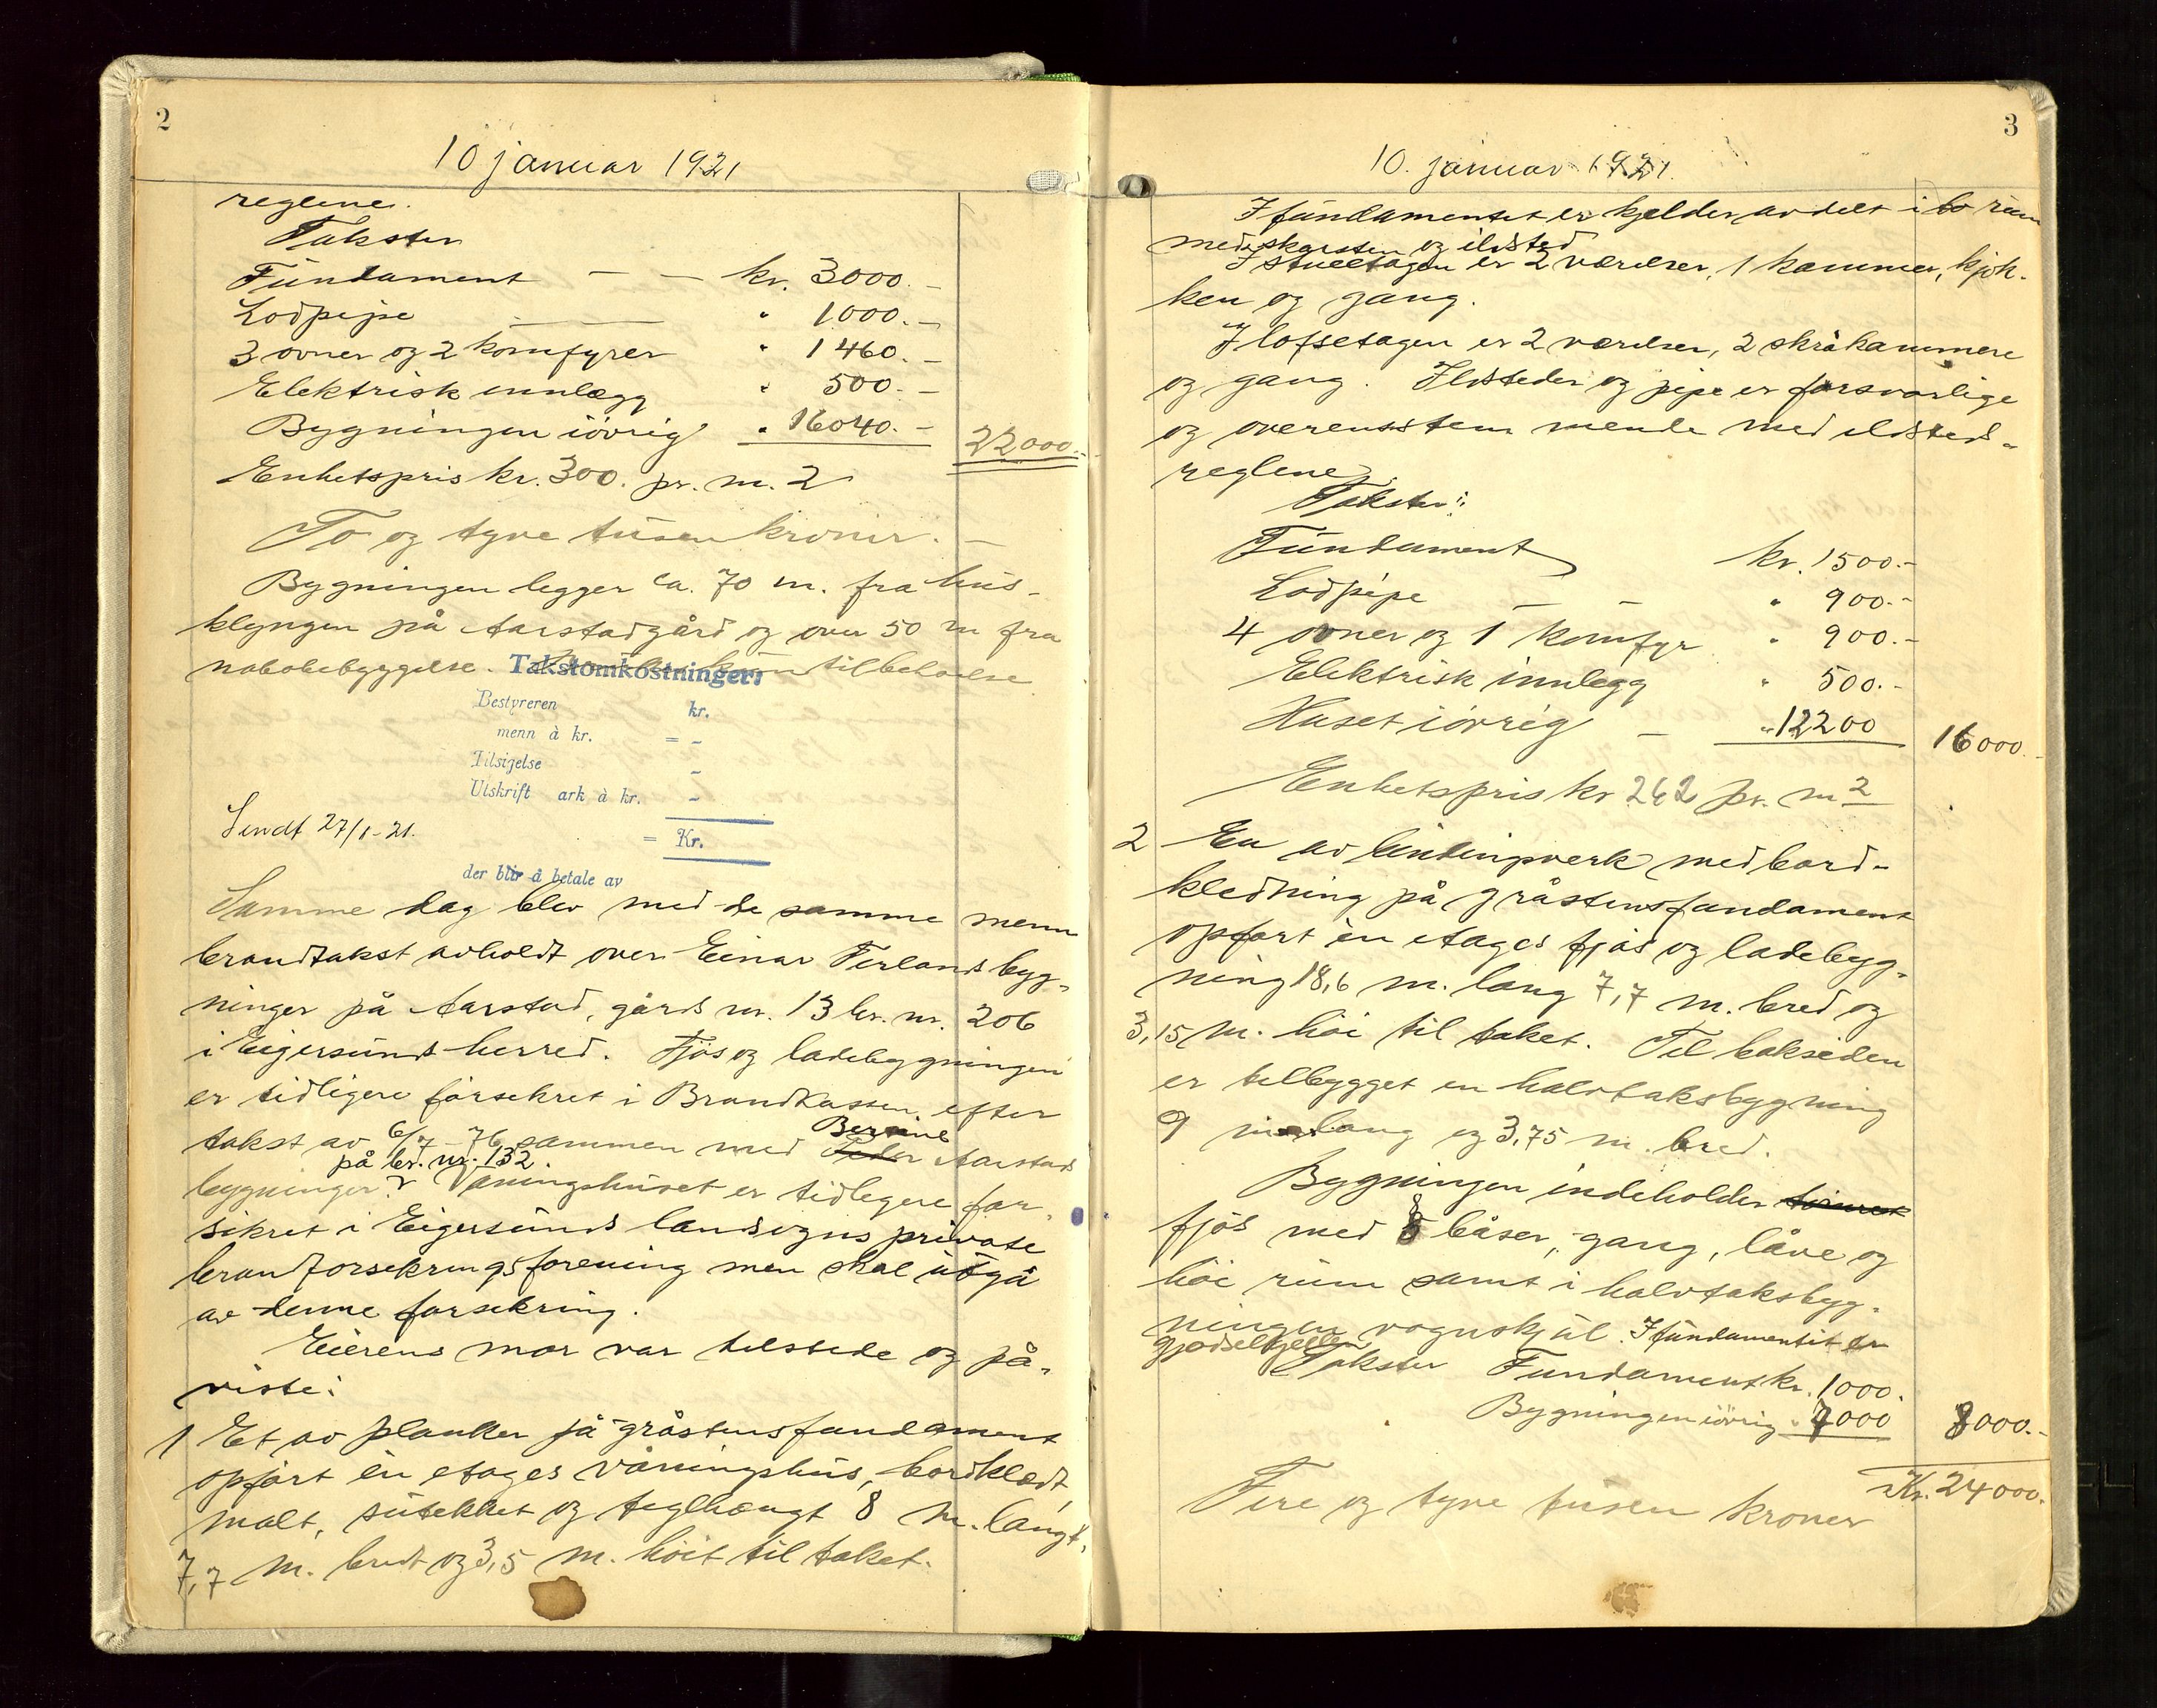 2
10 januar 1921
reglene.
Takster
Fundament — — kr. 3000.-
Lodpipe — " 1000.-
3 ovner og 2 komfyrer " 1460.-
Elektrisk innlægg " 500.-
Bygningen iövrig " 16040.- 22000.-
Enhetspris kr. 300. pr. m. 2
To og tyve tusen kroner.-
Bygningen legger ca. 70 m. fra hus-
klyngen på Aarstadgård og over 50 m fra
nabobebyggelse. tilbehørelse
Takstomkostninger:
Bestyreren kr.
menn à kr. = -
Tilsigelse -
Utskrift ark à kr. -
Sendt 27/1-21. = Kr.
der blir å betale av
Samme dag blev med de samme menn
brandtakst avholdt over Einar Ferlands byg-
ninger på Aarstad, gårds nr. 13 br. nr. 206
i Eigersunds herred. Fjös og ladebygningen
er tidligere forsekret i Brandkassen, efter
takst av 6/7-76 sammen med Berine Aarstads
på br. nr. 132.
bygninger. Våningshuset er tidlegere for-
sikret i Eigersunds landsogns private
brandforsekringsforening men skal utgå
av denne forsekring.
Eierens mor var tilstede og på-
viste:
1 Et av planker på gråstensfundament
opført en etages våningshus, bordklædt,
malt, sutekket og teglhængt 8 m. langt,
7,7 m. bredt og 3,5 m. höit til taket.
3
10. januar 1921.
I fundamentet er kjelder avdelt i to rum
med skorsten og ildsted
I stueetagen er 2 værelser, 1 kammer, kjök-
ken og gang.
I loftsetagen er 2 værelser, 2 skråkammere
og gang. Ildsteder og pipe er forsvarlige
og overensstemmende med ildsteds-
reglene.
Takster:
Fundament kr. 1500.-
Lodpipe — — " 900.-
4 ovner og 1 komfyr " 900.-
Elektrisk innlegg " 500.-
Huset iövrig — " 12200 16000.-
Enhetspris kr 262 pr. m 2
2 En av bindingsverk med bord-
kledning på gråstensfundament
opført én etages fjös og ladebyg-
ning 18,6 m. lang 7,7 m. bred og
3,15 m. höi til taket. Til baksiden
er tilbygget en halvtaksbygning
9 m. lang og 3,75 m. bred.
Bygningen indeholder
fjös med 8 båser, gang, låve og
höi rum samt i halvtaksbyg-
ningen vognskjul. I fundamentet er
gjødselkjeller
Takster Fundament kr. 1000.
Bygningen iövrig " 7000 8000.-
Kr. 24000.
Fire og tyve tusen kroner